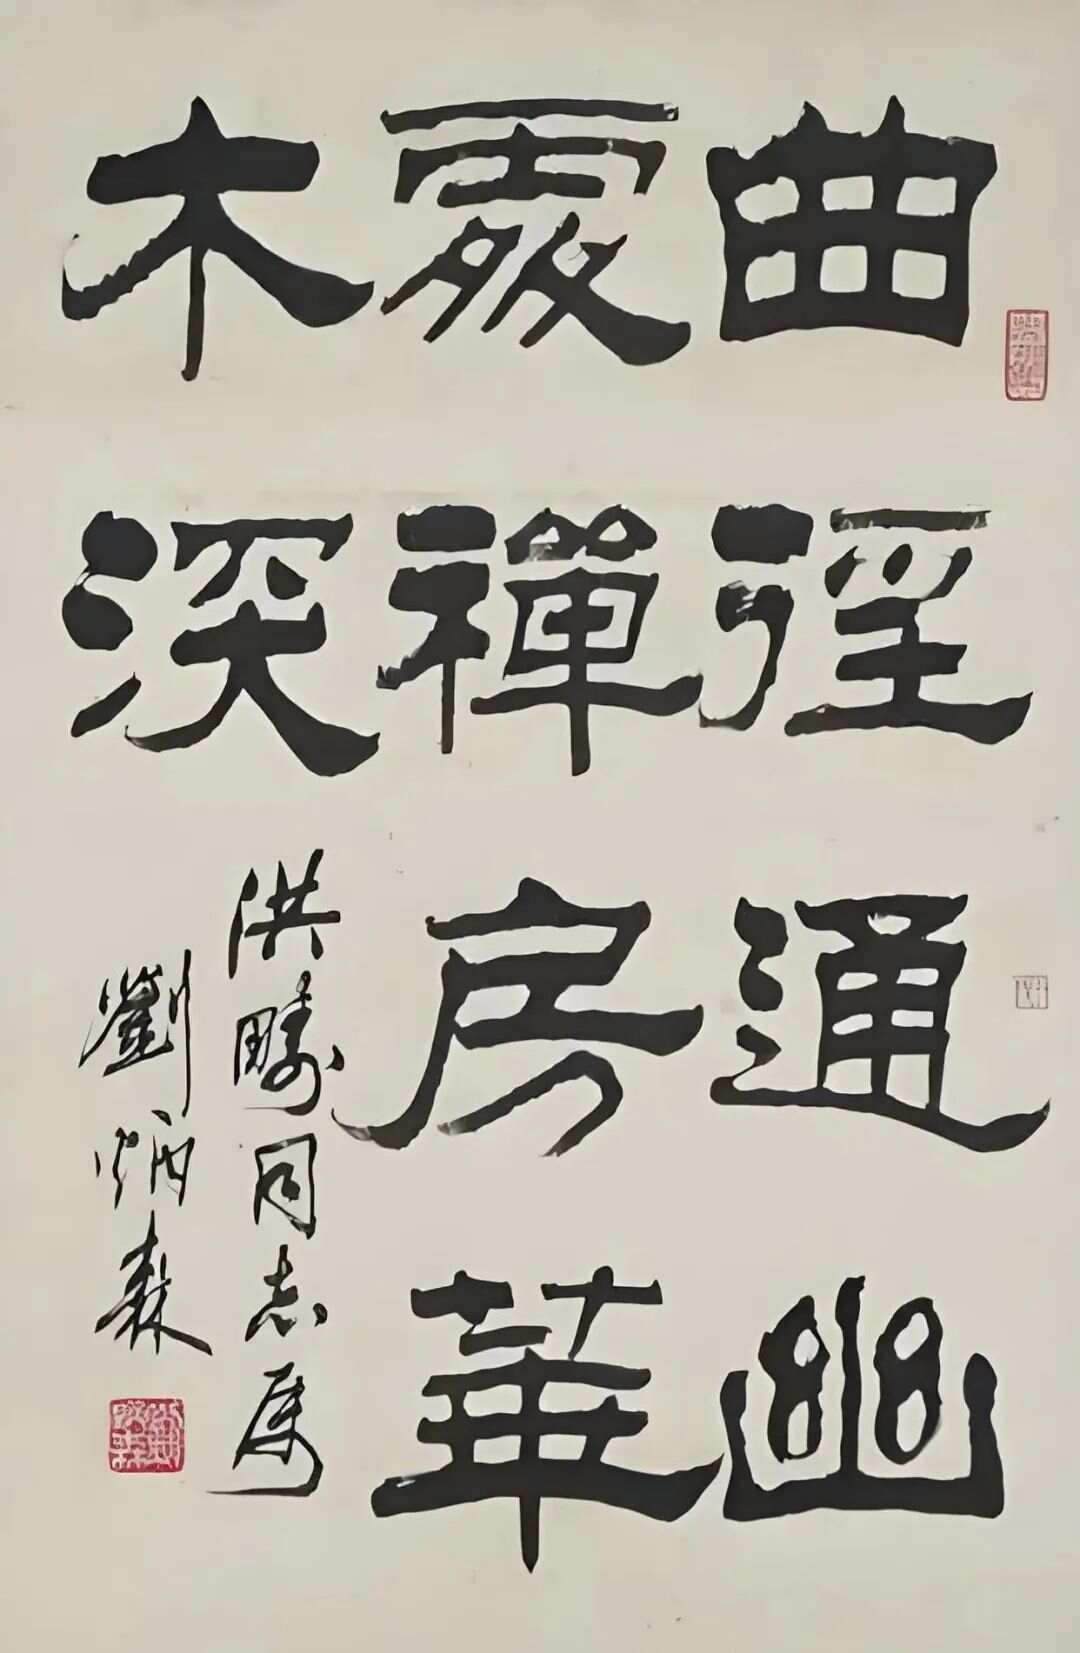 曲徑通幽
處禪房華
木深
洪疇同志属
劉炳森